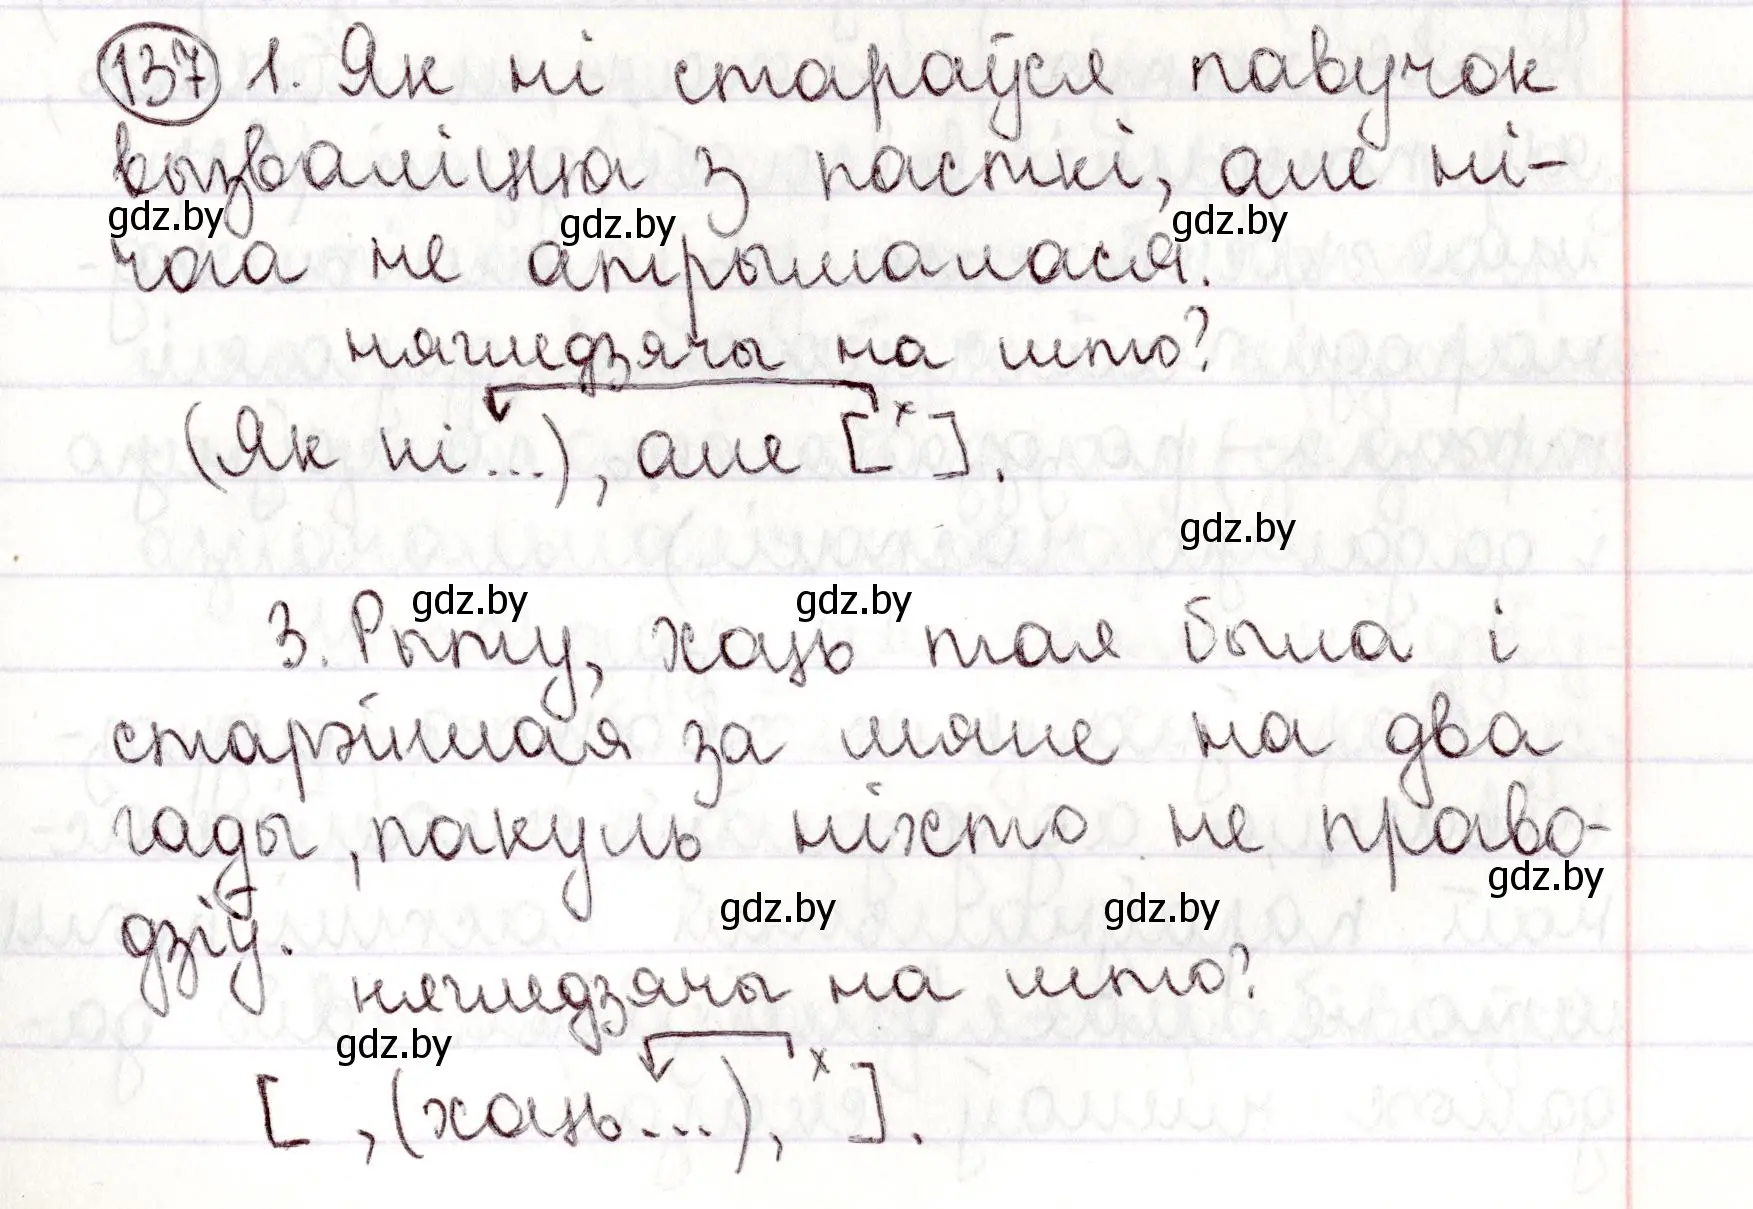 137 1. Як ні стараўся павучок
вызваліцца з пасткі, але ні-
gdz.by gdz.by gdz.by
чога не атрымалася.
нягледзячы на што?
(Як ні...), але [ x ].
gdz.by
gdz.by gdz.by
3. Рыту, хаць тая была і
старэйшая за мяне на два
гады, пакуль ніхто не право-
gdz.by
дзіў. gdz.by gdz.by
нягледзячы на што?
gdz.by
[ , (хаць...), x ].